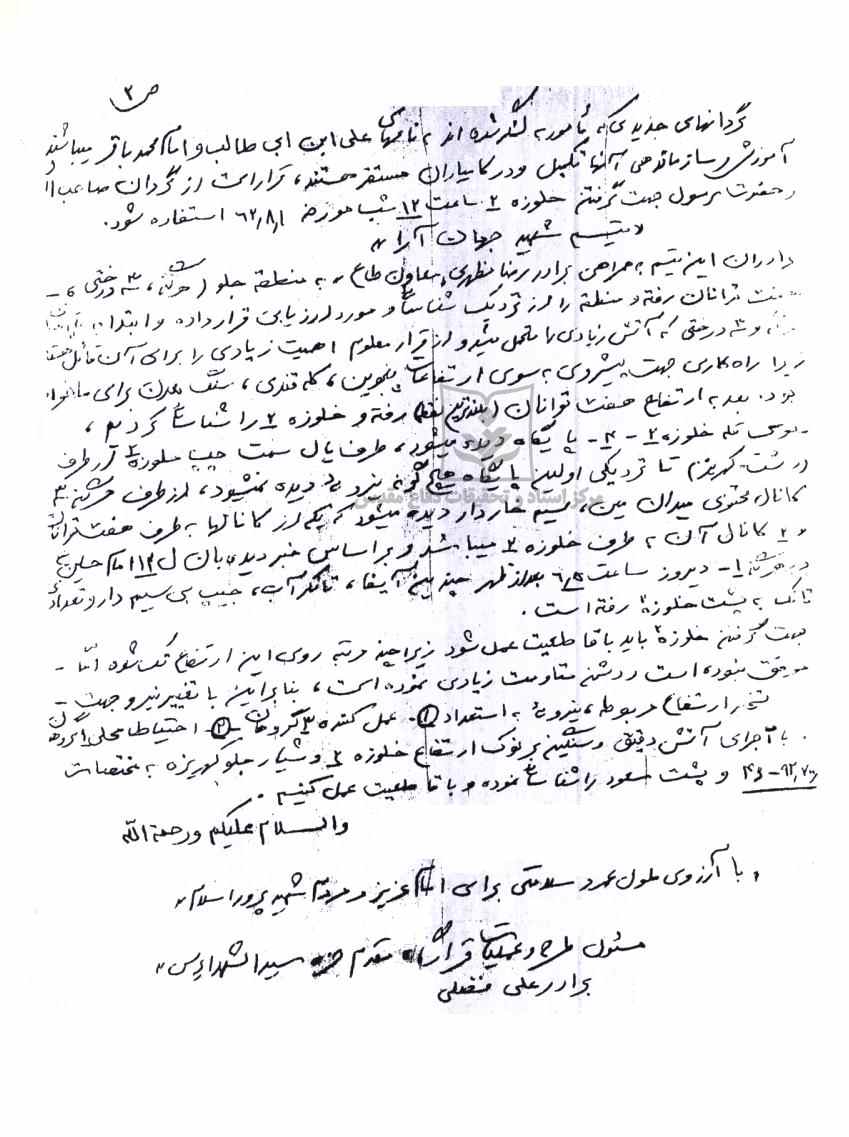 ص ۲
گردانهای جدیدی که مأمور به لشکر شده از به نامهای علی ابن ابی طالب و امام محمد باقر میباشند
آموزش و سازماندهی آنها تکمیل و در کامیاران مستقر هستند، قرار است از گردان صاحب
و حضرت رسول جهت گرفتن خلوزه ۲ ساعت ۱۲ شب مورخه ۶۲٫۸٫۱ استفاده شود.
«تیم شهید جهان آرا»
داوران این تیم به همراهی برادر رضا مظهری معاون طاع به منطقه جلو (خرنگه، سه درختی و
هفت توانان رفته و منطقه را از نزدیک شناسایی و مورد ارزیابی قرار داده و ابتدا به
و سه درختی که آتش زیادی را متحمل میشد و از قرار معلوم اهمیت زیادی را برای آن قائل
زیرا راه کاری جهت پیشروی به سوی ارتفاعات پنجوین، کله قندی، سنگ معدن برای ما
بود. بعد به ارتفاع هفت توانان (بلندترین نقطه) رفته و خلوزه ۲ را شناسایی کردیم،
تله خلوزه ۲ - ۳ - پایگاه دیده میشود، طرف یال سمت چپ خلوزه ۲ از طرف
دشت کهریزه تا نزدیکی اولین پایگاه هیچ گونه نیروئی دیده نمیشود، از طرف خرنگه ۳
کانال محتوی میدان مین، سیم خاردار دیده میشود که یکی از کانالها به طرف هفت توانان
و ۲ کانال آن به طرف خلوزه ۲ میباشد و بر اساس خبر دیده بان ل ۱۴ امام حسین
در خرنگه ۱ - دیروز ساعت ۶٫۵ بعد از ظهر چندین آیفا، تانکر آب، جیپ بی سیم دار و تعدادی
تانک به پشت خلوزه رفته است.
جهت گرفتن خلوزه باید با قاطعیت عمل شود زیرا چند مرتبه روی این ارتفاع تک شده امّا -
موفق نبوده است و دشمن مقاومت زیادی نموده است، بنابراین با تغییر نیرو جهت -
تسخیر ارتفاع مربوطه، نیروئی به استعداد ۱- عمل کننده ۳ گروهان ۲- احتیاط محلی ۱ گروهان
با اجرای آتش دقیق و سنگین بر نوک ارتفاع خلوزه ۲ و شیار جلو کهریزه به مختصات
۹۲٫۷ - ۴۶ و پشت مسعود را شناسائی نموده و با قاطعیت عمل کنیم.
والسلام علیکم و رحمة الله
«با آرزوی طول عمر و سلامتی برای امام عزیز و مردم شهید پرور اسلام»
مسئول طرح و عملیات قرارگاه مقدم حمزه سیدالشهداء س»
برادر علی فضلی
مرکز اسناد و تحقیقات دفاع مقدس